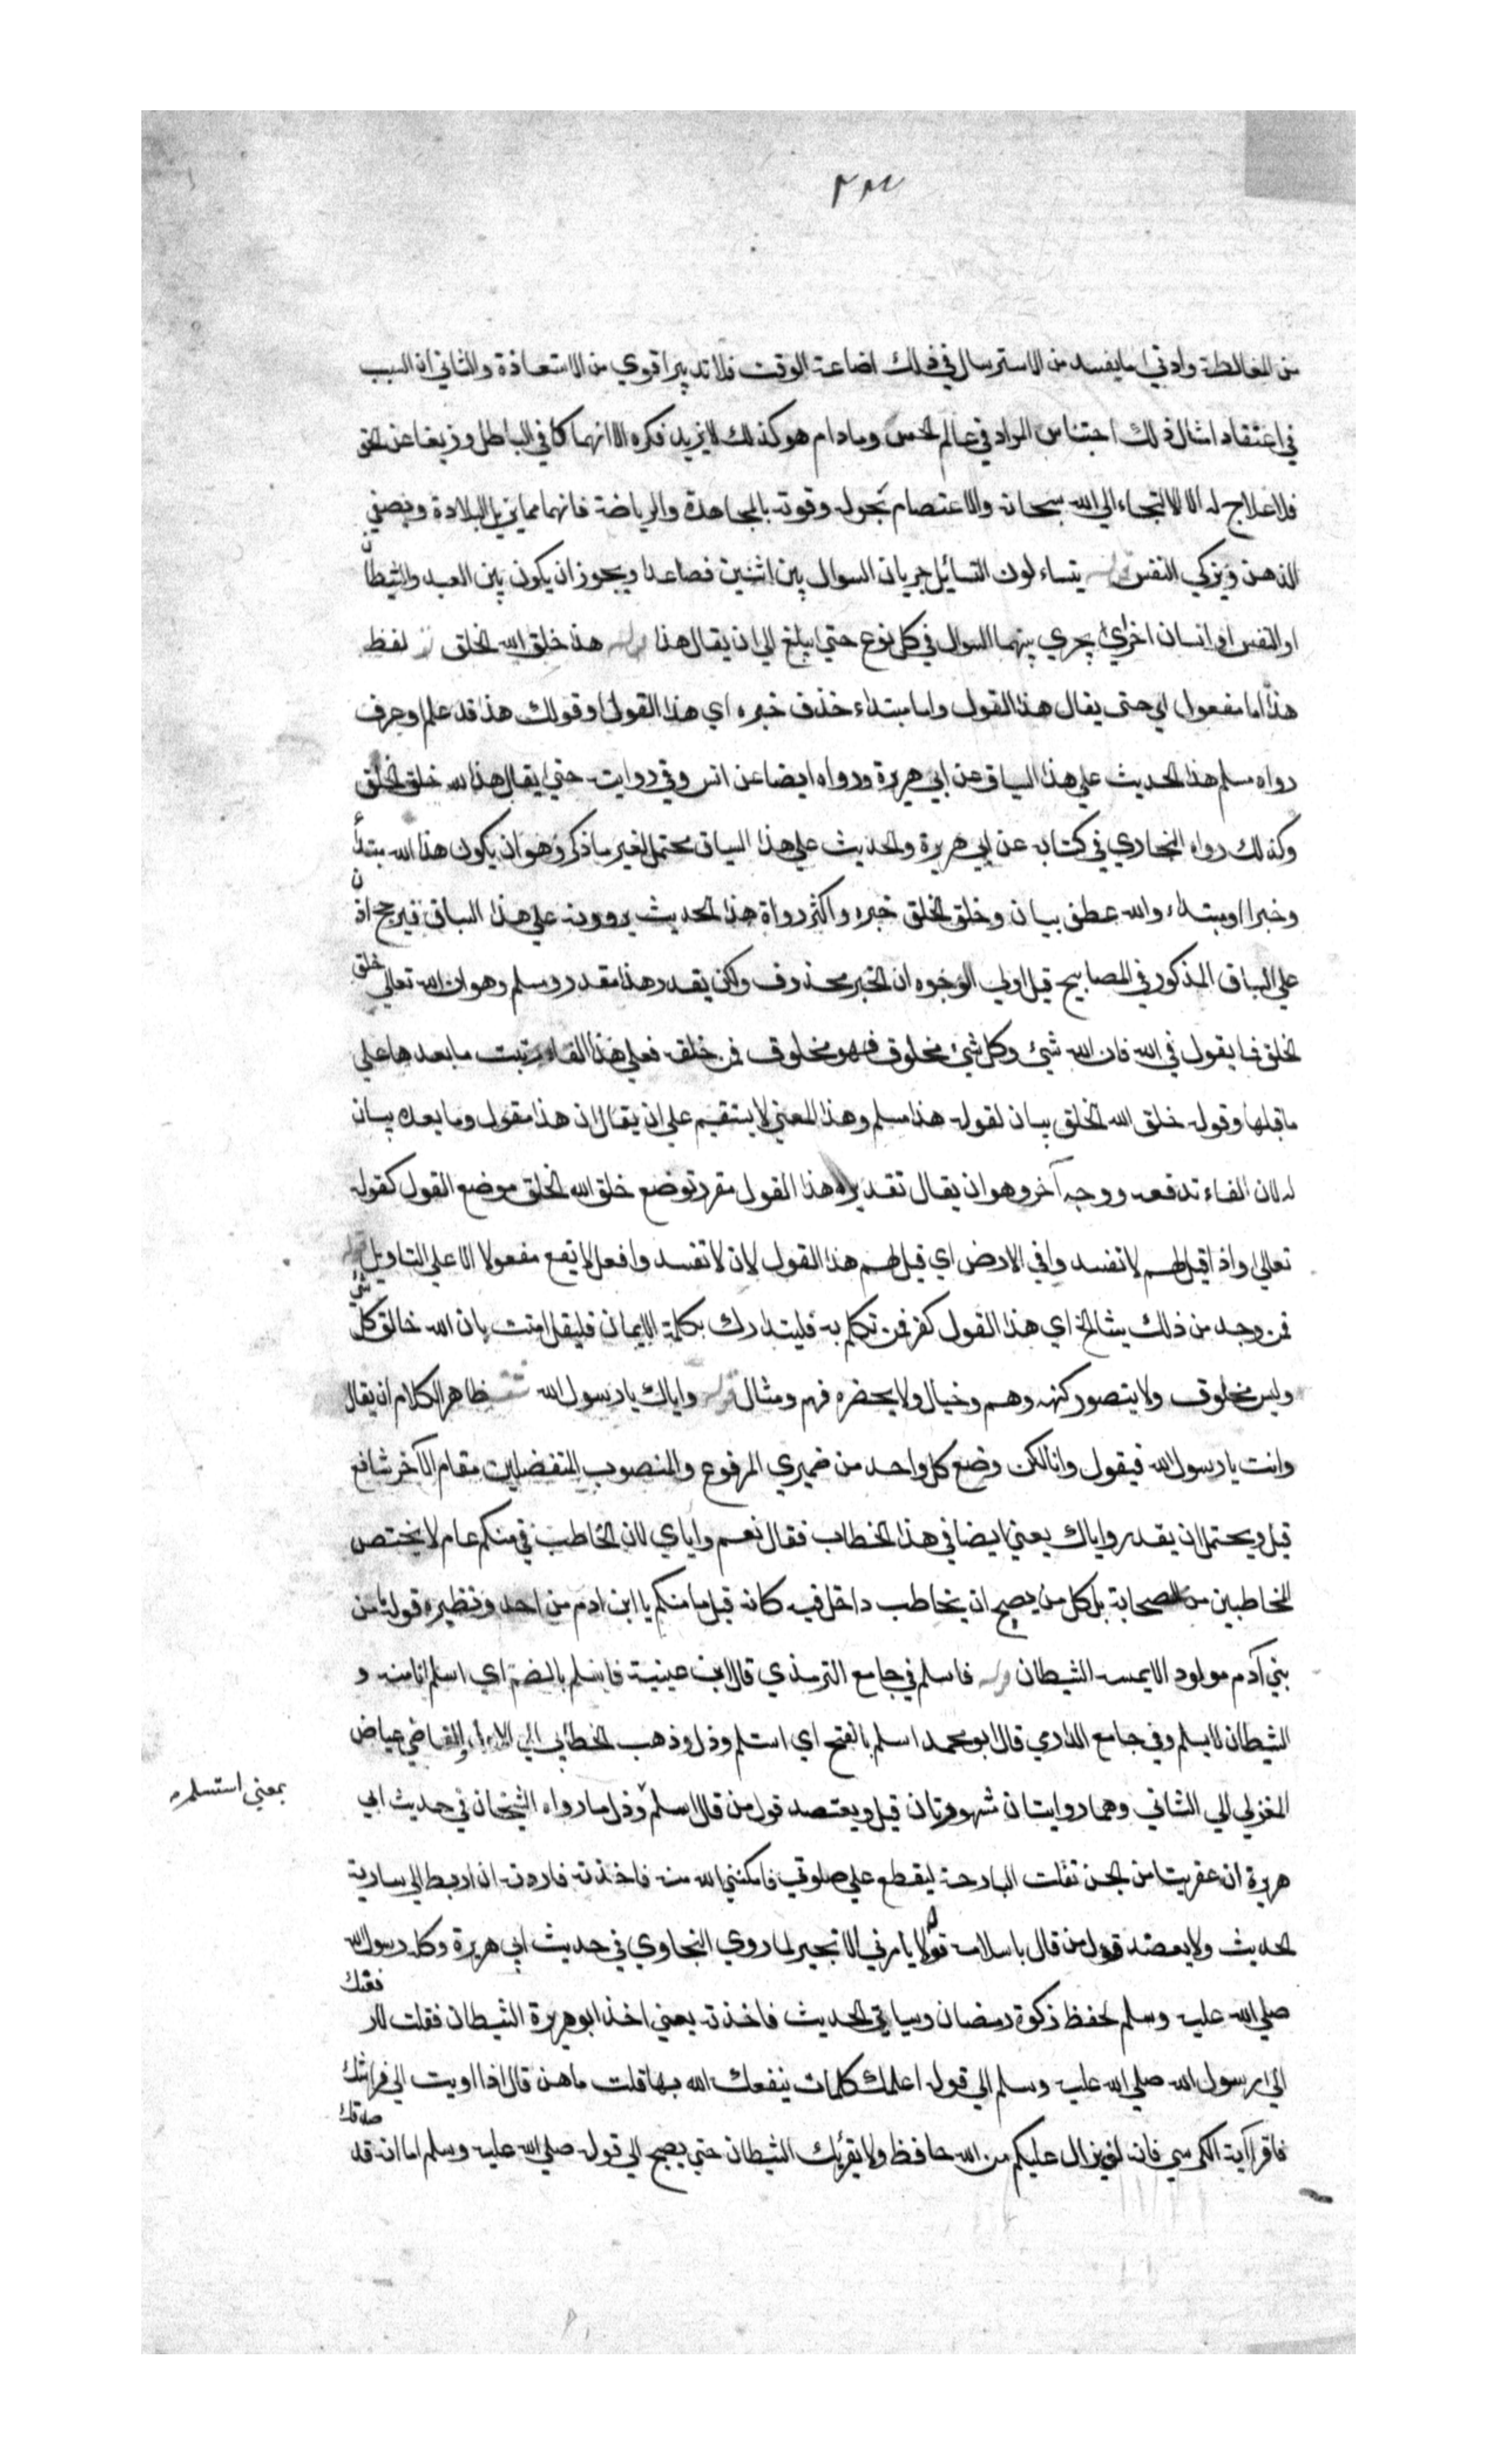 من المغالطة وادنى ما يفسد من الاسترسال في ذلك اضاعة الوقت فلا تدبير اقوي من الاستعاذة والثاني ان السبب
في اعتقاد امثال ذلك احتباس المراد في عالم الحس وما دام هو كذلك لا يزيد فكره الا انهماكا في الباطل وزيغا عن الحق
فلا علاج له الا الالتجاء الي الله سبحانه والاعتصام بحوله وقوته بالمجاهدة والرياضة فانهما مما يزيل البلادة ويصفي
الذهن ويزكي النفس قوله يتساءلون التسائل جريان السوال بين اثنين فصاعدا ويجوز ان يكون بين العبد والشيطان
او النفس او انسان اخر اي يجري بينهما السوال في كل نوع حتي يبلغ الي ان يقال هذا قوله هذا خلق الله الخلق لفظ
هذا اما مفعول اي حتى يقال هذا القول واما مبتداء حذف خبره اي هذا القول او قولك هذا قد علم او عرف
رواه مسلم هذا الحديث علي هذا السياق عن ابي هريرة ورواه ايضا عن انس وفي روايته حتي يقال هذا الله خلق الخلق
وكذلك رواه البخاري في كتابه عن ابي هريرة والحديث علي هذا السياق محتمل لغير ما ذكر وهو ان يكون هذا الله مبتدأ
وخبرا او مبتداء والله عطف بيان وخلق الخلق خبره واكثر رواة هذا الحديث يروونه علي هذا السياق فيرجح اذن
علي السياق المذكور في المصابيح قيل اولي الوجوه ان الخبر محذوف ولكن يقدر هذا مقدر ومسلم وهو ان الله تعالي خلق
الخلق فما يقول في الله فان الله شئ وكل شئ مخلوق فهو مخلوق فمن خلقه فعلي هذا الفاء رتبت ما بعدها علي
ما قبلها وقوله خلق الله الخلق بيان لقوله هذا مسلم وهذا المعني لا يستقيم علي ان يقال ان هذا مقول وما بعده بيان
له لان الفاء تدفعه ووجه آخر وهو ان يقال تقديره هذا القول مقرر توضع خلق الله الخلق موضع القول كقوله
تعالي واذا قيل لهم لا تفسدوا في الارض اي قيل لهم هذا القول لان لا تفسدوا فعل لا يقع مفعولا الا علي التاويل قوله
فمن وجد من ذلك شيئا الخ اي هذا القول كفر فمن تكلم به فليتدارك بكلمة الايمان فليقل امنت بان الله خالق كل شئ
وليس مخلوق ولا يتصور كنهه وهم وخيال ولا يحضره فهم ومثال قوله واياك يا رسول الله ظاهر الكلام ان يقال
وانت يا رسول الله فيقول وانا لكن وضع كل واحد من ضميري المرفوع والمنصوب المنفصلين مقام الآخر شائع
قيل ويحتمل ان يقدر واياك يعني ايضا في هذا الخطاب فقال نعم واياي لان الخاطب في منكم عام لا يختص
المخاطبين من الصحابة بل كل من يصح ان يخاطب داخل فيه كانه قيل ما منكم يا ابن ادم من احد ونظيره قوله من
بني آدم مولود الا يمسه الشيطان قوله فاسلم في جامع الترمذي قال ابن عيينة فاسلم بالضم اي اسلم انا منه و
الشيطان لا يسلم وفي جامع الدارمي قال ابو محمد اسلم بالفتح اي استسلم وذل وذهب الخطابي الي الاول والقاضي عياض
المغربي الي الثاني وهما روايتان مشهورتان قيل ويعتضد قول من قال اسلم وذل ما رواه الشيخان في حديث ابي
بمعني استسلم
هريرة ان عفريتا من الجن تفلت البارحة ليقطع علي صلوتي فامكنني الله منه فاخذته فاردت ان اربطه الي سارية
الحديث ولا يعضد قول من قال باسلامه قوله لا يامرني الا بخير لما روي البخاري في حديث ابي هريرة وكله رسول الله
صلي الله عليه وسلم لحفظ زكوة رمضان وسياق الحديث فاخذته يعني اخذ ابو هريرة الشيطان فقلت لارفعنك
الي رسول الله صلي الله عليه وسلم الي قوله اعلمك كلمات ينفعك الله بها قلت ما هن قال اذا اويت الي فراشك
فاقرا آية الكرسي فانه لن يزال عليكم من الله حافظ ولا يقربك الشيطان حتي يصبح الي قوله صلي الله عليه وسلم اما انه قد صدقك